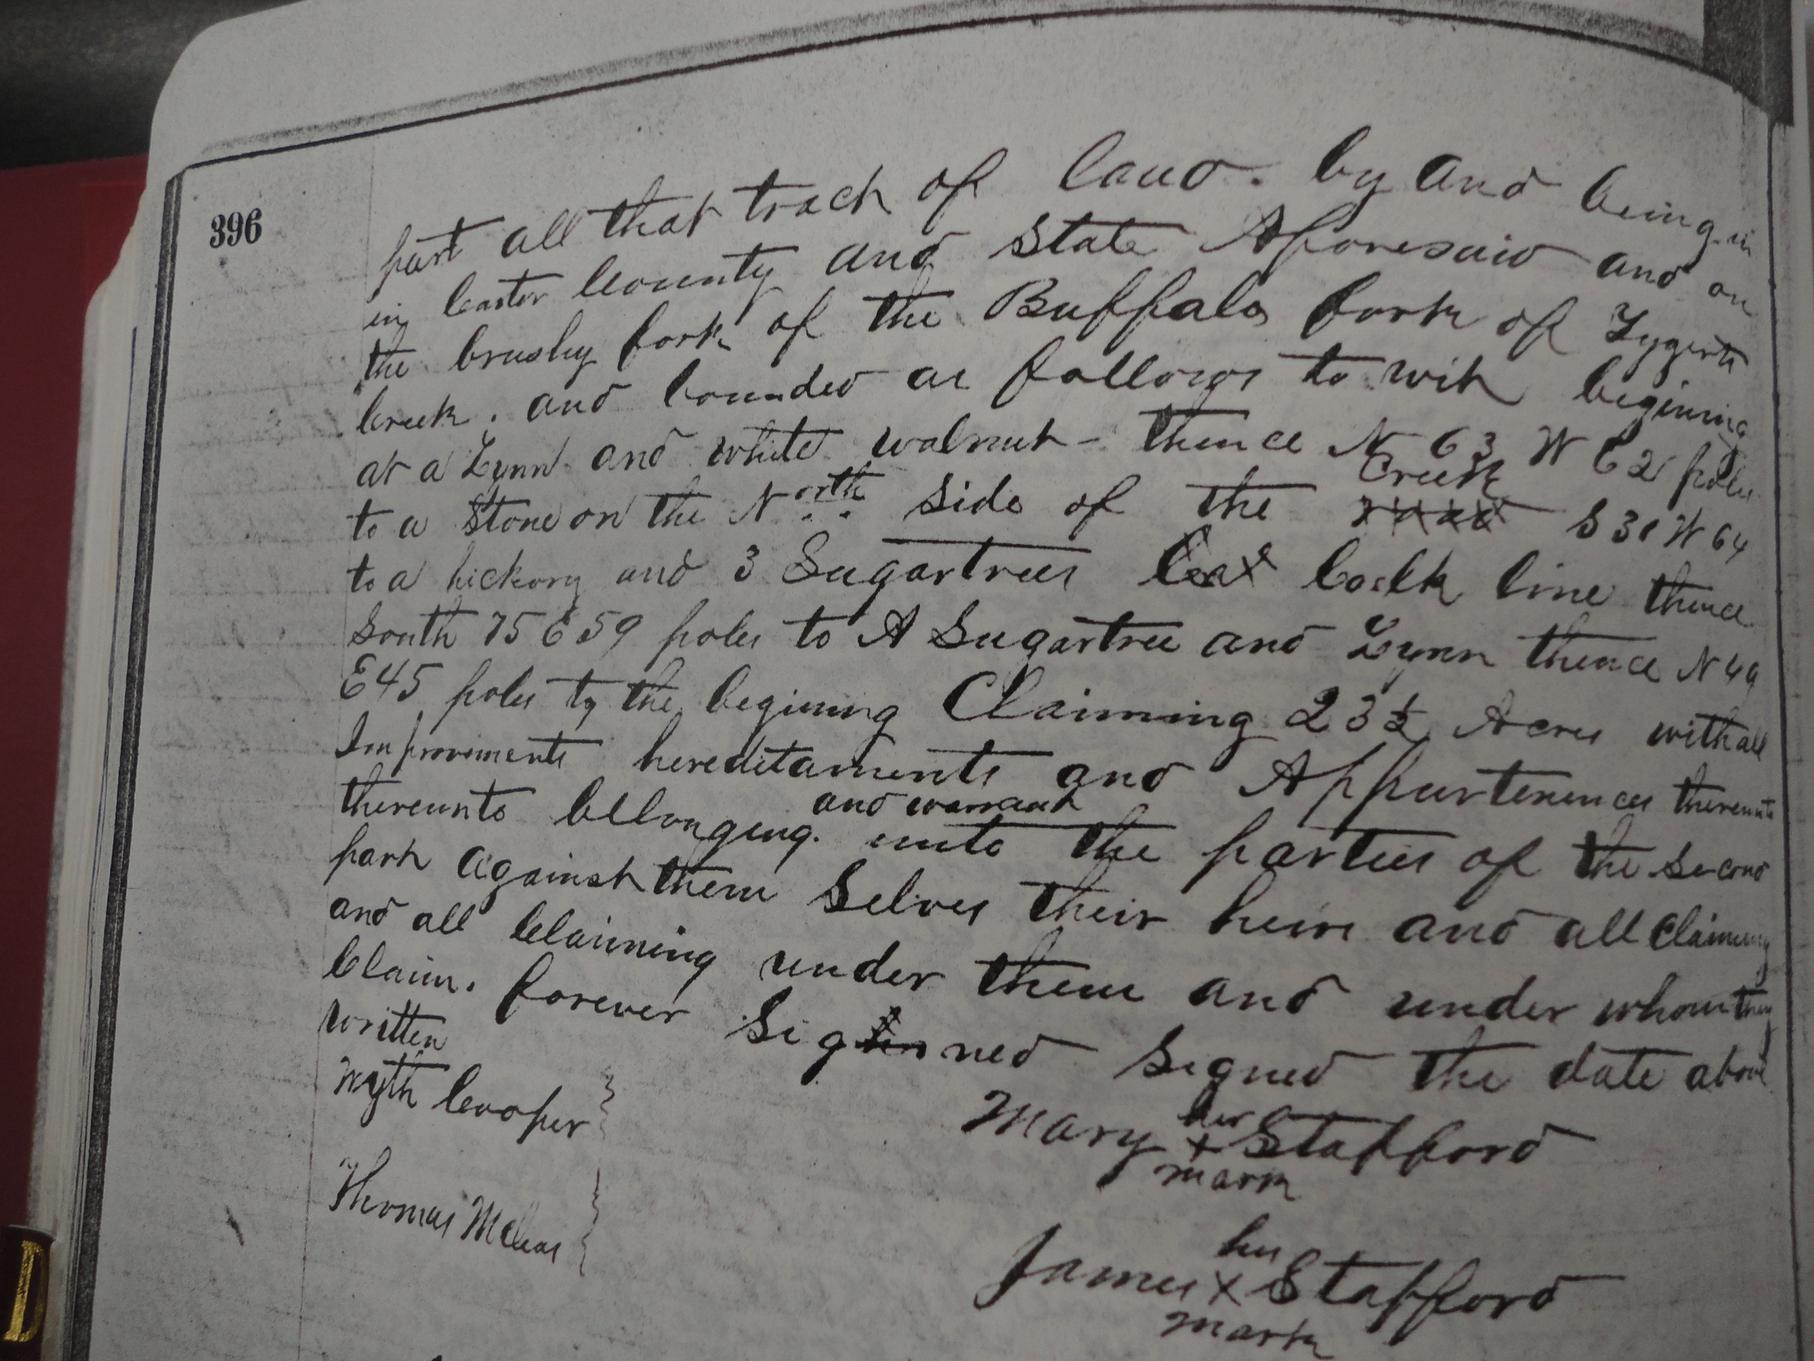 396
part all that track of land. by and being in
in Carter County and State Aforesaid and on
the brushy fork of the Buffalo fork of Tygerts
Creek. and bounded as follows to wit begining
at a Lynn and white walnut - thence N 63 W 62 poles
to a Stone on the North side of the Creek S 31 W 64
to a hickory and 3 Sugartrees line thence
South 75 E 59 poles to A Sugartree and Lynn thence N 49
E 45 poles to the begining Claiming 23½ Acres with all
Improvements hereditaments and Appurtenences thereunto
thereunto bellonging. and warrant unto the parties of the second
part against them selves their heirs and all claiming
and all Claiming under them and under whom they
Claim. forever Signed Signed the date above
written
Cooper } Mary her x mark Stafford
Thomas } James his x mark Stafford
D